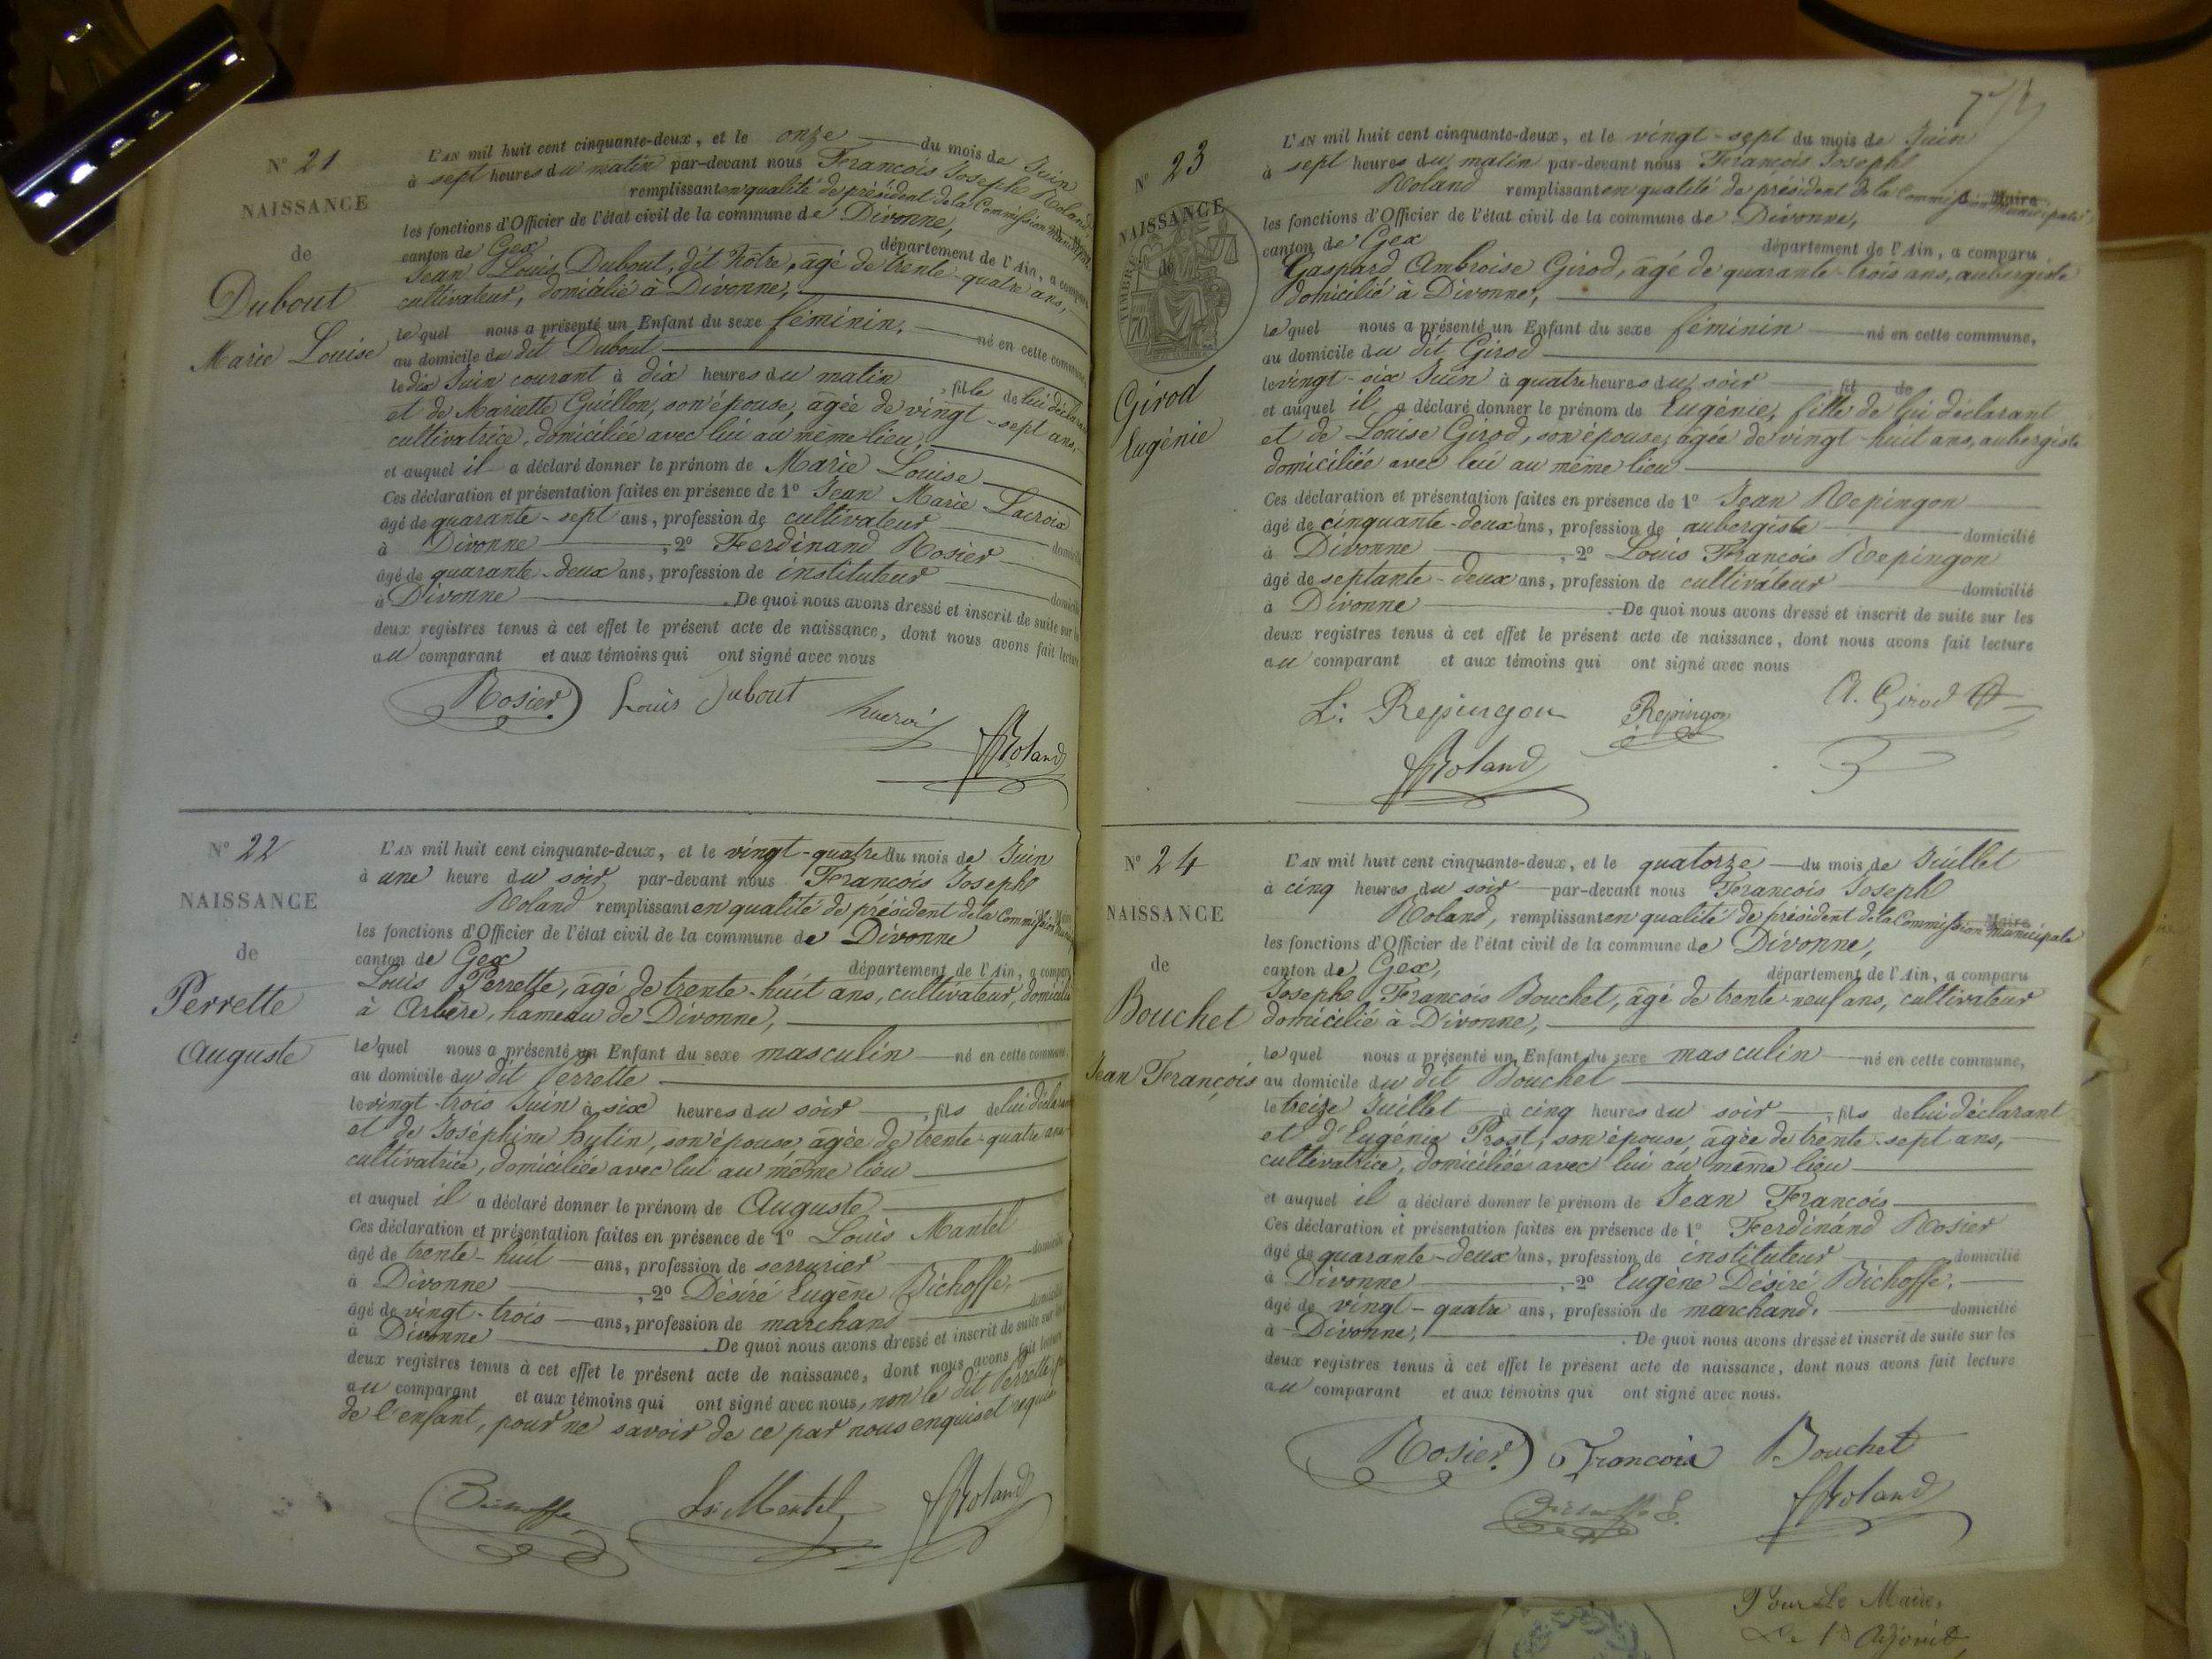 N° 21
NAISSANCE
de
Dubout
Marie Louise
L'AN mil huit cent cinquante-deux, et le onze du mois de Juin
à sept heures du matin par-devant nous François Joseph Roland,
remplissant en qualité de président de la Commission
les fonctions d'Officier de l'état civil de la commune de Divonne,
canton de Gex département de l'Ain, a comparu
Jean Louis Dubout, dit Notre, âgé de trente-quatre ans,
cultivateur, domicilié à Divonne,
lequel nous a présenté un Enfant du sexe féminin, né en cette commune,
au domicile du dit Dubout
le dix Juin courant à dix heures du matin, fille de lui déclarant
et de Mariette Guillon, son épouse, âgée de vingt-sept ans,
cultivatrice, domiciliée avec lui au même lieu,
et auquel il a déclaré donner le prénom de Marie Louise
Ces déclaration et présentation faites en présence de 1° Jean Marie Lacroix
âgé de quarante-sept ans, profession de cultivateur domicilié
à Divonne, 2° Ferdinand Rosier
âgé de quarante-deux ans, profession de instituteur domicilié
à Divonne. De quoi nous avons dressé et inscrit de suite sur les
deux registres tenus à cet effet le présent acte de naissance, dont nous avons fait lecture
au comparant et aux témoins qui ont signé avec nous
Rosier Louis Dubout
Roland
N° 22
NAISSANCE
de
Perrette
Auguste
L'AN mil huit cent cinquante-deux, et le vingt-quatre du mois de Juin
à une heure du soir par-devant nous François Joseph
Roland remplissant en qualité de président de la Commission
les fonctions d'Officier de l'état civil de la commune de Divonne
canton de Gex département de l'Ain, a comparu
Louis Perrette, âgé de trente-huit ans, cultivateur, domicilié
à Arbère, hameau de Divonne,
lequel nous a présenté un Enfant du sexe masculin né en cette commune,
au domicile du dit Perrette
le vingt-trois Juin à six heures du soir, fils de lui déclarant
et de Joséphine Hytin, son épouse âgée de trente-quatre ans
cultivatrice, domiciliée avec lui au même lieu
et auquel il a déclaré donner le prénom de Auguste
Ces déclaration et présentation faites en présence de 1° Louis Mantel
âgé de trente-huit ans, profession de serrurier domicilié
à Divonne, 2° Désiré Eugène Bichoffe,
âgé de vingt-trois ans, profession de marchand domicilié
à Divonne. De quoi nous avons dressé et inscrit de suite sur les
deux registres tenus à cet effet le présent acte de naissance, dont nous avons fait lecture
au comparant et aux témoins qui ont signé avec nous, non le dit Perrette
de l'enfant, pour ne savoir de ce par nous enquis et requis
Roland
7
N° 23
NAISSANCE
de
TIMBRE
70
Girod
Eugénie
L'AN mil huit cent cinquante-deux, et le vingt-sept du mois de Juin
à sept heures du matin par-devant nous François Joseph
Roland remplissant en qualité de président de la Commission Municipale Maire
les fonctions d'Officier de l'état civil de la commune de Divonne,
canton de Gex département de l'Ain, a comparu
Gaspard Ambroise Girod, âgé de quarante-trois ans, aubergiste
domicilié à Divonne,
lequel nous a présenté un Enfant du sexe féminin né en cette commune,
au domicile du dit Girod
le vingt-six Juin à quatre heures du soir fil de
et auquel il a déclaré donner le prénom de Eugénie, fille de lui déclarant
et de Louise Girod, son épouse, âgée de vingt-huit ans, aubergiste
domiciliée avec lui au même lieu
Ces déclaration et présentation faites en présence de 1° Jean Repingon
âgé de cinquante-deux ans, profession de aubergiste domicilié
à Divonne, 2° Louis François Repingon
âgé de septante-deux ans, profession de cultivateur domicilié
à Divonne. De quoi nous avons dressé et inscrit de suite sur les
deux registres tenus à cet effet le présent acte de naissance, dont nous avons fait lecture
au comparant et aux témoins qui ont signé avec nous
L: Repingon Repingon A. Girod
Roland
N° 24
NAISSANCE
de
Bouchet
Jean François
L'AN mil huit cent cinquante-deux, et le quatorze du mois de Juillet
à cinq heures du soir par-devant nous François Joseph
Roland, remplissant en qualité de président de la Commission Municipale Maire
les fonctions d'Officier de l'état civil de la commune de Divonne,
canton de Gex, département de l'Ain, a comparu
Joseph François Bouchet, âgé de trente-neuf ans, cultivateur
domicilié à Divonne,
lequel nous a présenté un Enfant du sexe masculin né en cette commune,
au domicile du dit Bouchet
le treize Juillet à cinq heures du soir, fils de lui déclarant
et d'Eugénie Prost, son épouse, âgée de trente-sept ans,
cultivatrice, domiciliée avec lui au même lieu
et auquel il a déclaré donner le prénom de Jean François
Ces déclaration et présentation faites en présence de 1° Ferdinand Rosier
âgé de quarante-deux ans, profession de instituteur domicilié
à Divonne, 2° Eugène Désiré Bichoffe,
âgé de vingt-quatre ans, profession de marchand, domicilié
à Divonne,. De quoi nous avons dressé et inscrit de suite sur les
deux registres tenus à cet effet le présent acte de naissance, dont nous avons fait lecture
au comparant et aux témoins qui ont signé avec nous.
Rosier François Bouchet
Roland
Pour Le Maire,